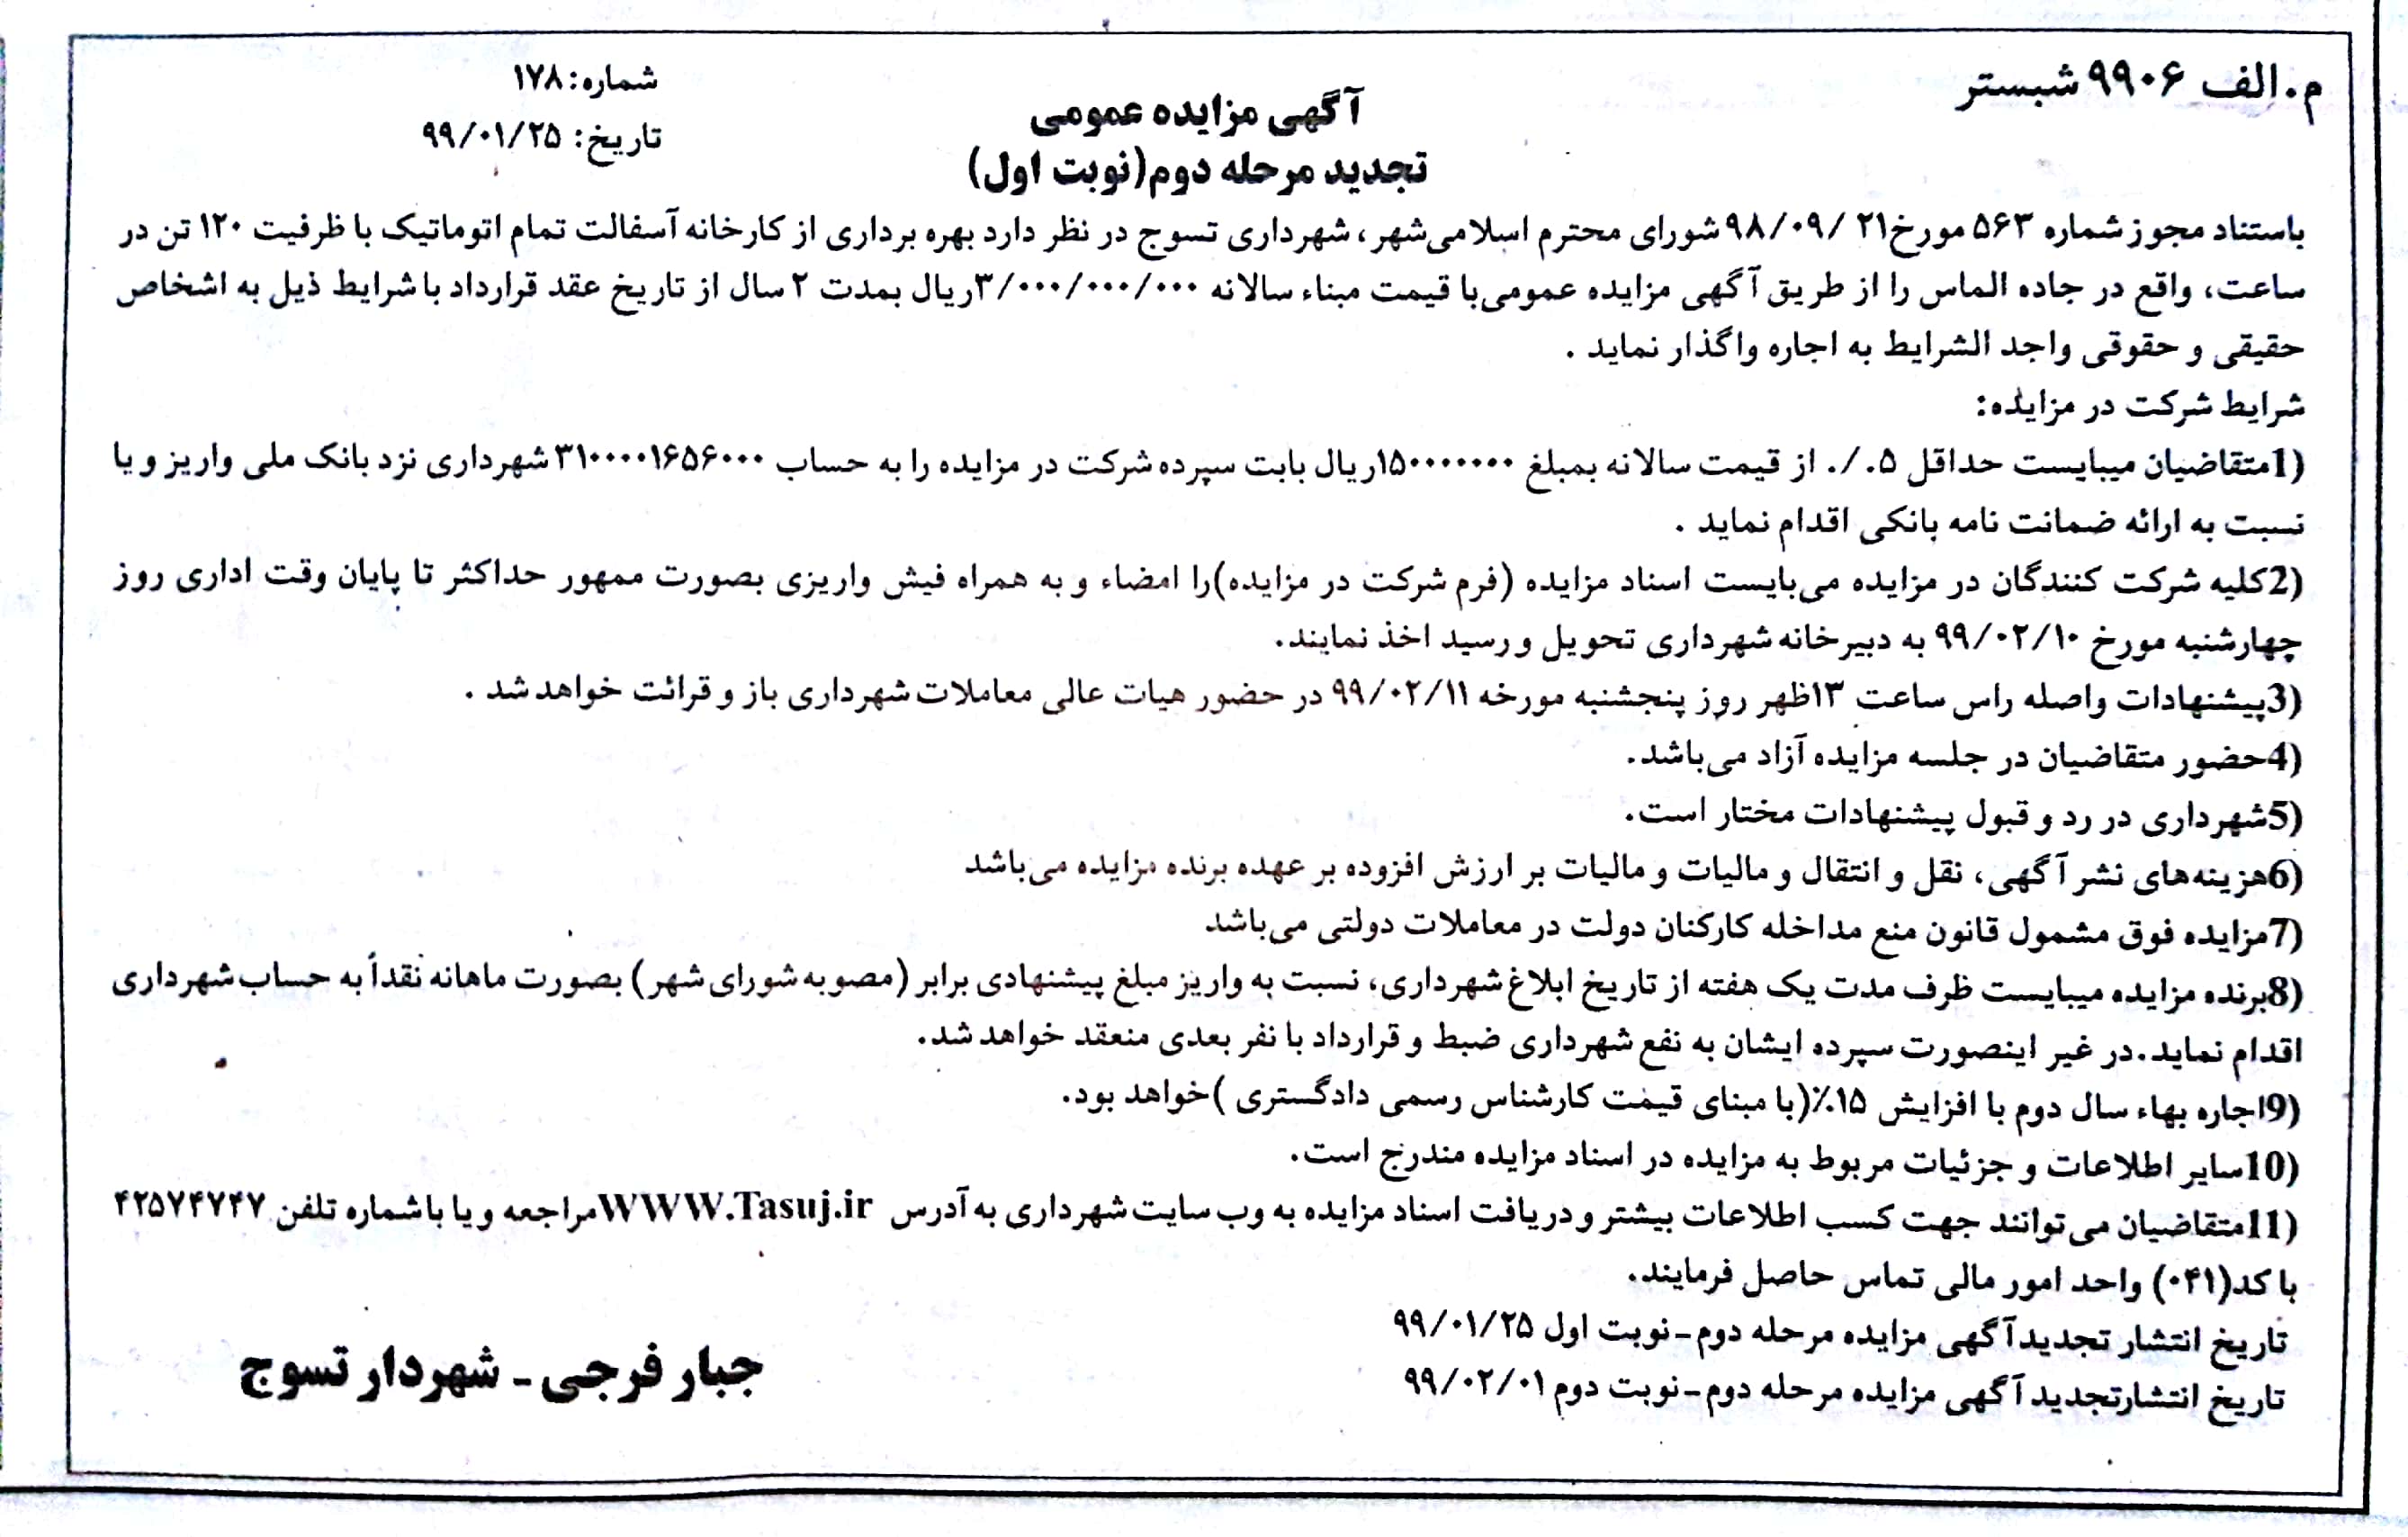 م.الف ۹۹۰۶ شبستر
شماره: ۱۷۸
تاریخ: ۹۹/۰۱/۲۵
آگهی مزایده عمومی
تجدید مرحله دوم(نوبت اول)
باستناد مجوز شماره ۵۶۳ مورخ۲۱ /۹۸/۰۹ شورای محترم اسلامی‌شهر، شهرداری تسوج در نظر دارد بهره برداری از کارخانه آسفالت تمام اتوماتیک با ظرفیت ۱۲۰ تن در
ساعت، واقع در جاده الماس را از طریق آگهی مزایده عمومی‌با قیمت مبناء سالانه ۳/۰۰۰/۰۰۰/۰۰۰ریال بمدت ۲ سال از تاریخ عقد قرارداد با شرایط ذیل به اشخاص
حقیقی و حقوقی واجد الشرایط به اجاره واگذار نماید .
شرایط شرکت در مزایده:
1)متقاضیان میبایست حداقل ۵./. از قیمت سالانه بمبلغ ۱۵۰۰۰۰۰۰۰ریال بابت سپرده شرکت در مزایده را به حساب ۳۱۰۰۰۰۱۶۵۶۰۰۰ شهرداری نزد بانک ملی واریز و یا
نسبت به ارائه ضمانت نامه بانکی اقدام نماید .
2)کلیه شرکت کنندگان در مزایده می‌بایست اسناد مزایده (فرم شرکت در مزایده)را امضاء و به همراه فیش واریزی بصورت ممهور حداکثر تا پایان وقت اداری روز
چهارشنبه مورخ ۹۹/۰۲/۱۰ به دبیرخانه شهرداری تحویل و رسید اخذ نمایند.
3)پیشنهادات واصله راس ساعت ۱۳ظهر روز پنجشنبه مورخه ۹۹/۰۲/۱۱ در حضور هیات عالی معاملات شهرداری باز و قرائت خواهد شد .
4)حضور متقاضیان در جلسه مزایده آزاد می‌باشد.
5)شهرداری در رد و قبول پیشنهادات مختار است.
6)هزینه‌های نشر آگهی، نقل و انتقال و مالیات و مالیات بر ارزش افزوده بر عهده برنده مزایده می‌باشد
7)مزایده فوق مشمول قانون منع مداخله کارکنان دولت در معاملات دولتی می‌باشد
8)برنده مزایده میبایست ظرف مدت یک هفته از تاریخ ابلاغ شهرداری، نسبت به واریز مبلغ پیشنهادی برابر (مصوبه شورای شهر) بصورت ماهانه نقداً به حساب شهرداری
اقدام نماید.در غیر اینصورت سپرده ایشان به نفع شهرداری ضبط و قرارداد با نفر بعدی منعقد خواهد شد.
9)اجاره بهاء سال دوم با افزایش ۱۵٪(با مبنای قیمت کارشناس رسمی دادگستری )خواهد بود.
10)سایر اطلاعات و جزئیات مربوط به مزایده در اسناد مزایده مندرج است.
11)متقاضیان می‌توانند جهت کسب اطلاعات بیشتر و دریافت اسناد مزایده به وب سایت شهرداری به آدرس WWW.Tasuj.ir مراجعه و یا با شماره تلفن ۴۲۵۷۴۷۴۷
با کد(۰۴۱) واحد امور مالی تماس حاصل فرمایند.
تاریخ انتشار تجدید آگهی مزایده مرحله دوم-نوبت اول ۹۹/۰۱/۲۵
تاریخ انتشارتجدید آگهی مزایده مرحله دوم-نوبت دوم ۹۹/۰۲/۰۱
جبار فرجی - شهردار تسوج